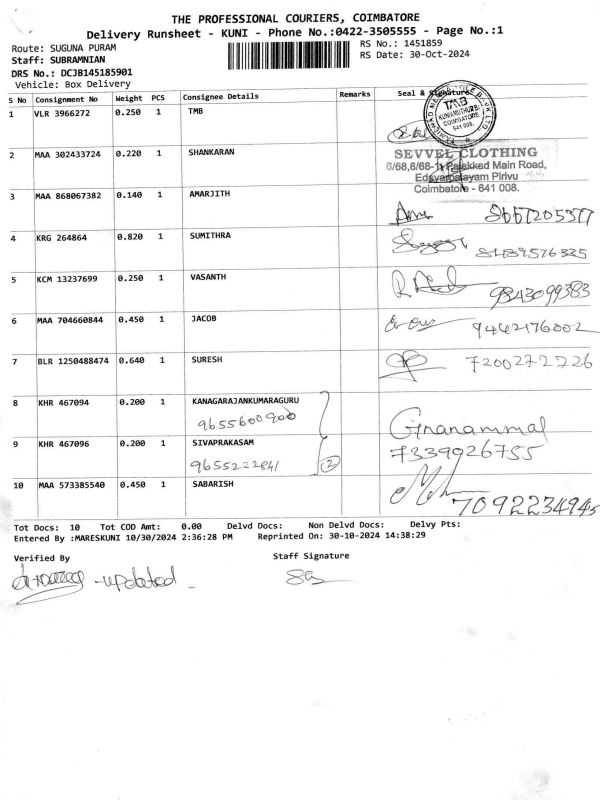 THE PROFESSIONAL COURIERS, COIMBATORE
Delivery Runsheet - KUNI - Phone No.:0422-3505555 - Page No.:1
Route: SUGUNA PURAM
RS No.: 1451859
Staff: SUBRAMNIAN
RS Date: 30-Oct-2024
DRS No.: DCJB145185901
Vehicle: Box Delivery
S No Consignment No Weight PCS Consignee Details Remarks Seal & Signature
1 VLR 3966272 0.250 1 TMB
TMB
KUNIAMUTHUR
COIMBATORE
641 008.
2 MAA 302433724 0.220 1 SHANKARAN
SEVVEL CLOTHING
6/68,6/68-1, Palakkad Main Road,
Edayarpalayam Pirivu
Coimbatore - 641 008.
3 MAA 868067382 0.140 1 AMARJITH
4 KRG 264864 0.820 1 SUMITHRA
5 KCM 13237699 0.250 1 VASANTH
9843099383
6 MAA 704660844 0.450 1 JACOB
9442176002
7 BLR 1250488474 0.640 1 SURESH
7200272226
8 KHR 467094 0.200 1 KANAGARAJANKUMARAGURU
9655600900
Gnanammal
9 KHR 467096 0.200 1 SIVAPRAKASAM
7339926755
9655222841 2
10 MAA 573385540 0.450 1 SABARISH
7092234945
Tot Docs: 10 Tot COD Amt: 0.00 Delvd Docs: Non Delvd Docs: Delvy Pts:
Entered By :MARESKUNI 10/30/2024 2:36:28 PM Reprinted On: 30-10-2024 14:38:29
Verified By Staff Signature
updated